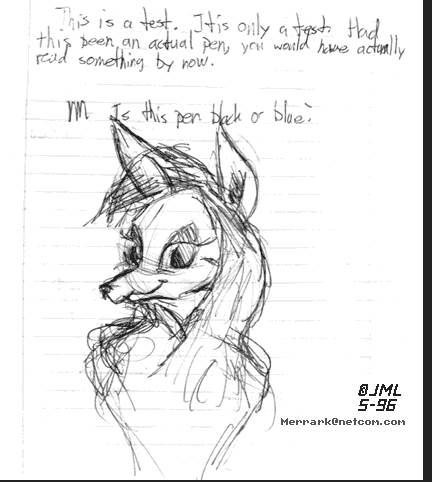 This is a test. It is only a test. Had
this been an actual pen, you would have actually
read something by now.
Is this pen black or blue?
@JML
5-96
Merrark@netcom.com